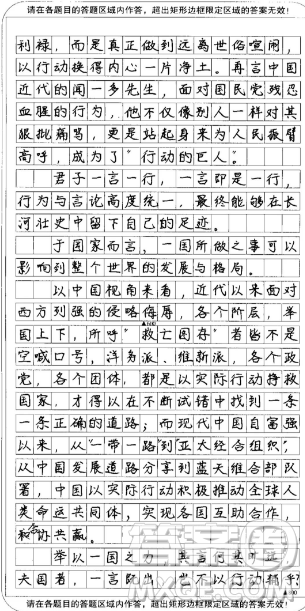 请在各题目的答题区域内作答，超出矩形边框限定区域的答案无效！
利禄，而是真正做到远离世俗喧闹，
以行动换得内心一片净土。再言中国
近代的闻一多先生，面对国民党残忍
血腥的行为，他不仅像别人一样对其
狠批痛骂，更是站起身来为人民振臂
高呼，成为了"行动的巨人"。
君子一言一行，一言即是一行，
行为与言论高度统一，最终能够在长
河壮史中留下自己的足迹。
于国家而言，一国所做之事可以
影响到整个世界的发展与格局。
以中国视角来看，近代以来面对
西方列强的侵略侮辱，各个阶层，举
国上下，所呼"救亡图存"者皆不是
空喊口号，洋务派、维新派，各个政
党，各个团体，都是以实际行动拯救
国家，才得以在不断试错中找到一条
一条正确的道路；而现代中国自富强
以来，从"一带一路"到"亚太经合组织"，
从中国发展道路分享到蓝天维合部队
署，中国以实际行动积极推动全球人
类命运共同体，实现各国互助合作，
和协共赢。
举以一国之力
夫国者，一言既出，也不以行动
请在各题目的答题区域内作答，超出矩形边框限定区域的答案无效！